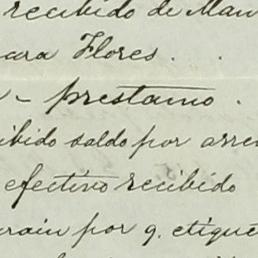 recibido de Man
cara Flores . .
- prestamo .
ibido saldo por arre
efectivo recibido
por q. etique